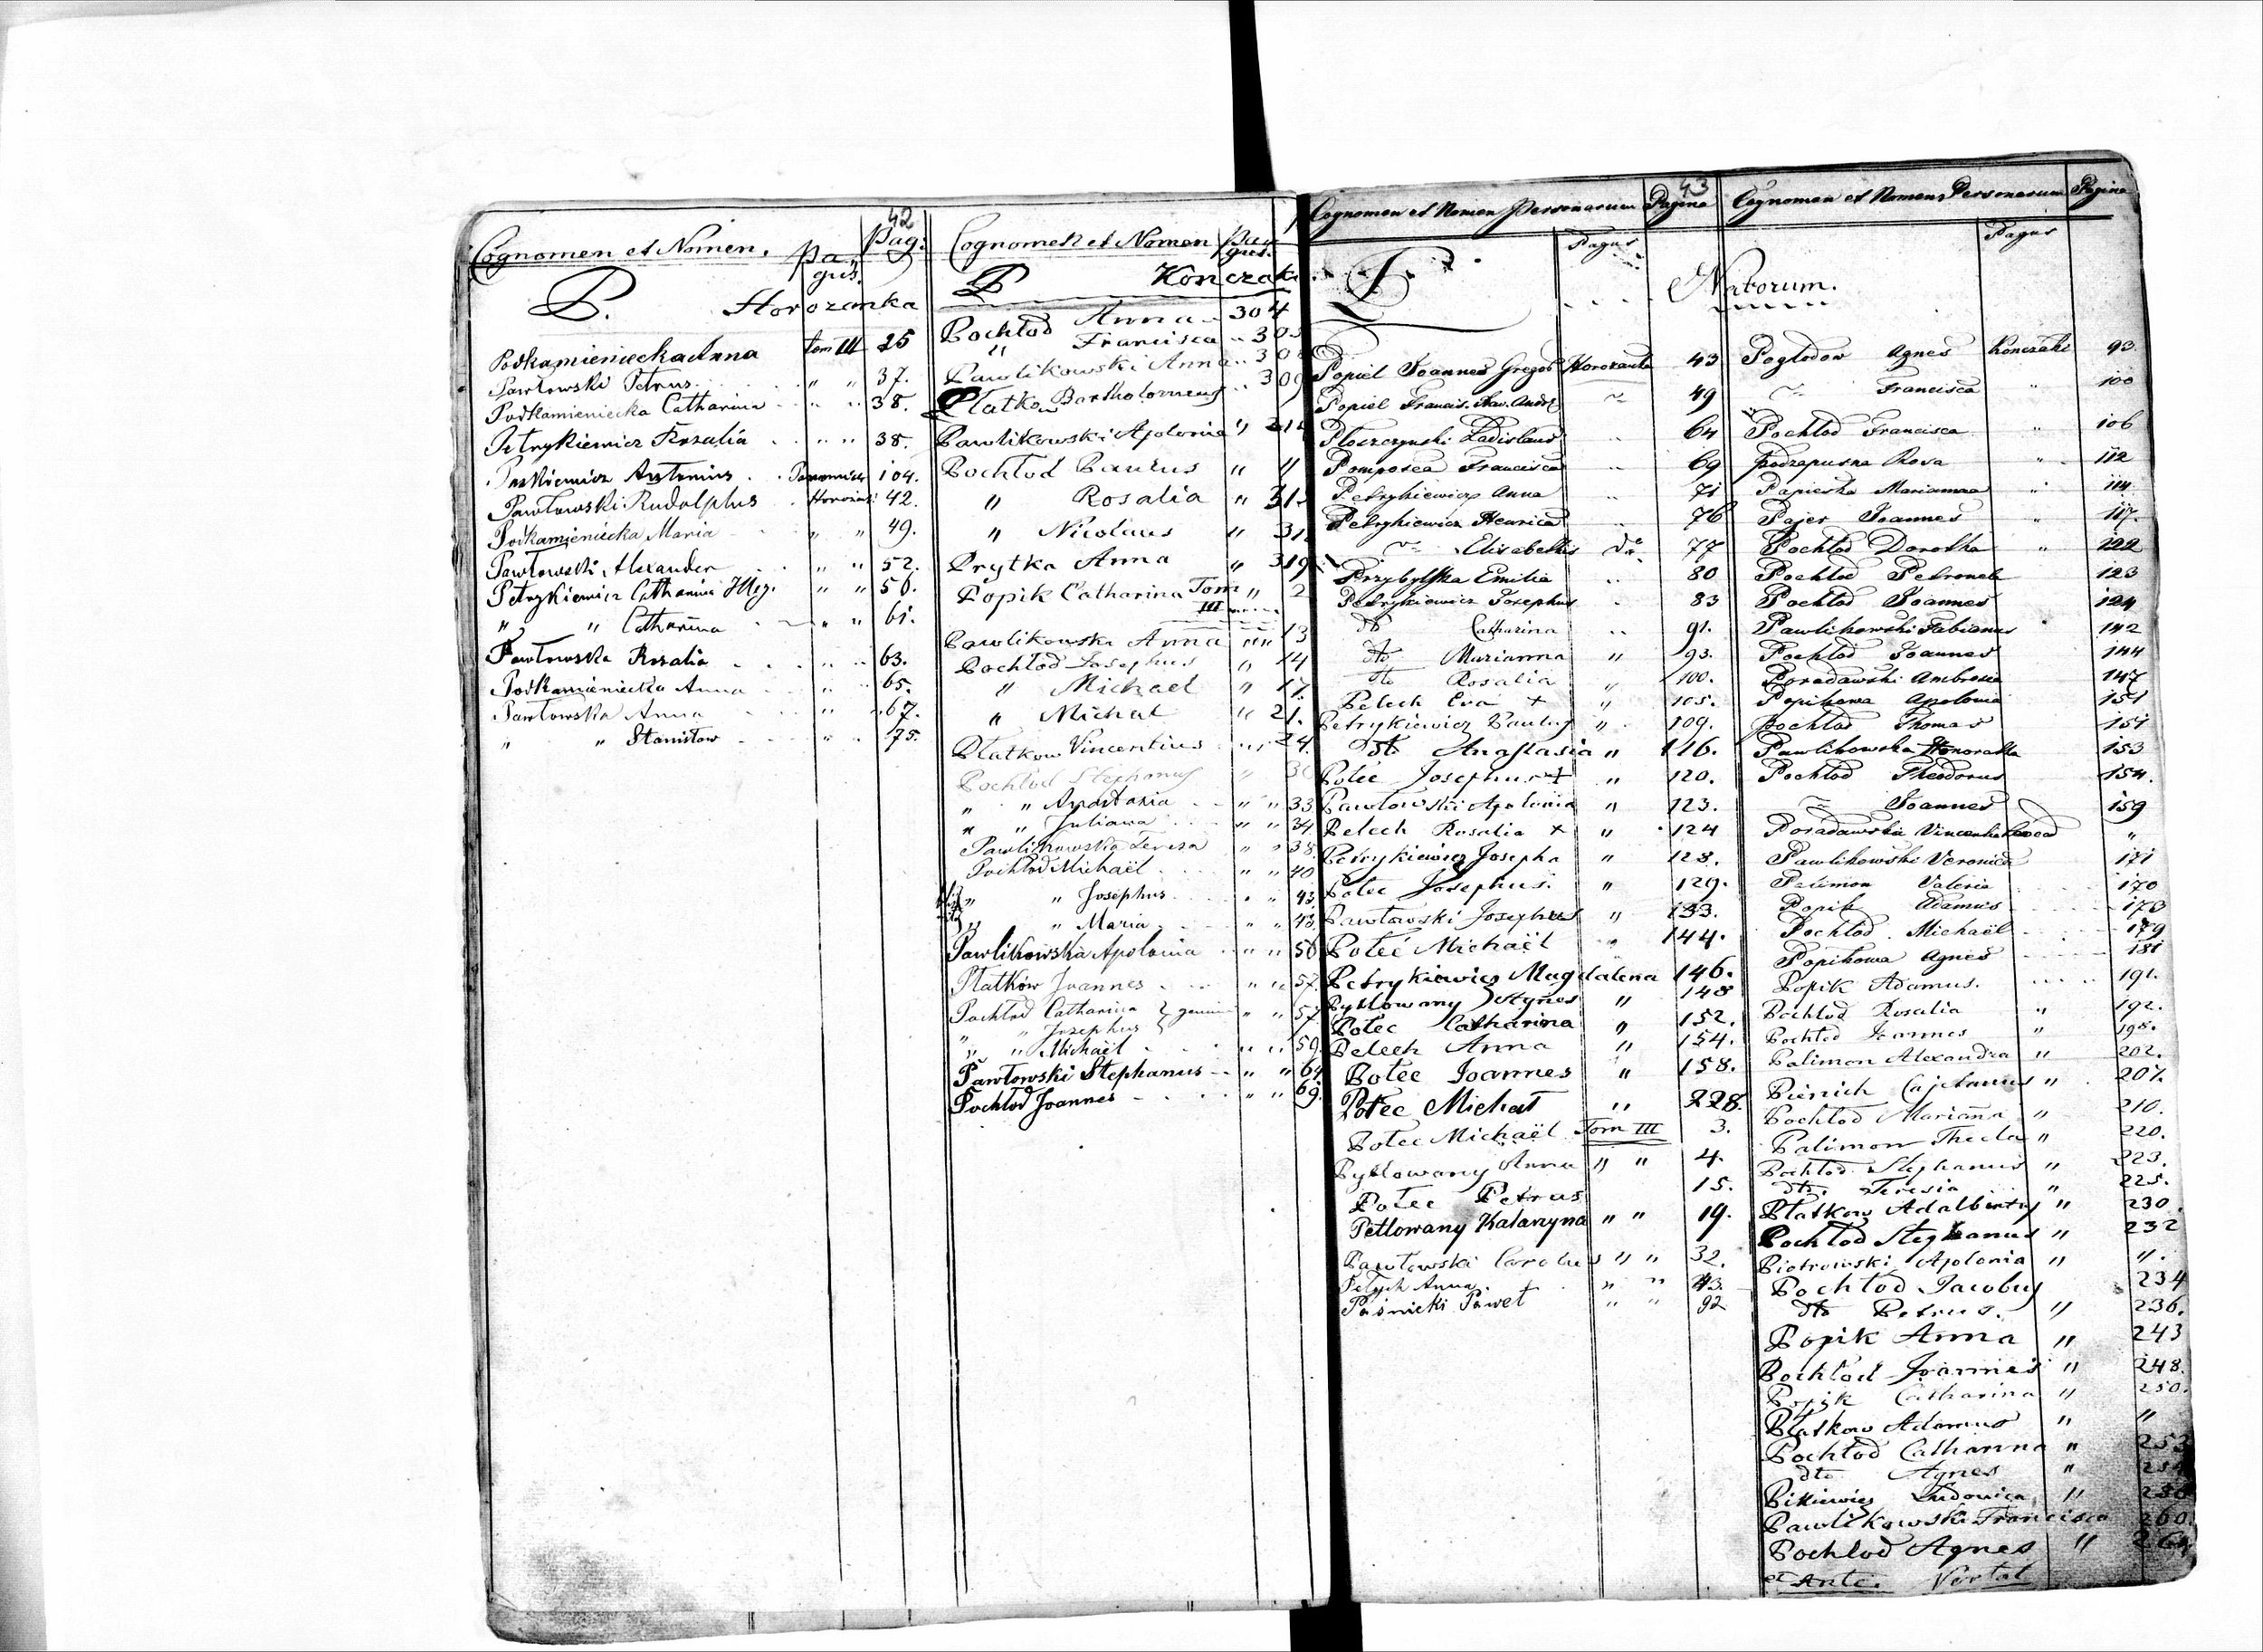 42
Cognomen et Nomen. Pagus. Pag:
P. Horozanka
Podkamieniecka Anna tom III 25
Pawłowski Petrus " " 37.
Podkamieniecka Catharina " " 38.
Petrykiewicz Rozalia " " 38.
Antonius 104.
Pawłowski Rudolphus 42.
Podkamieniecka Maria " " 49.
Pawłowski Alexander " " 52.
Petrykiewicz Catharina " " 56.
" " Catharina " " 61.
Pawłowska Rozalia " " 63.
Podkamieniecka Anna " " 65.
Pawłowska Anna " " 67.
" " Stanisław " " 75.
Cognomen et Nomen Pagus.
P Konczaki
Pochłod Anna 304
" Francisca
Pawlikowski Anna
Płatkow Bartholomeus 309
Pawlikowski Apolonia "
Pochłod Paulus " "
" Rosalia "
" Nicolaus "
Prytka Anna " 319
Popik Catharina Tom III " 2
Pawlikowska Anna " " 13
Pochłod Josephus " 14
" Michael " 17.
" Michał " 21.
Płatkow Vincentius 24.
Pochłod Stephanus "
" " Anastasia " " 33
" " Juliana " " 34
Pawlikowska Teresa " " 38.
Pochłod Michaël " " 40
" " Josephus " " 43
" " Maria " " 43
Pawlikowska Apolonia " " 56
Płatków Joannes " " 57.
Pochłod Catharina } gemini " " 57
" " Josephus }
" " Michaël " " 59
Pawłowski Stephanus " " 64
Pochłod Joannes " " 69.
43
Cognomen et Nomen Personarum Pagina
P. Pagus
Popiel Joannes Gregor Horozanka 43
Popiel Francis. 49
Płoszczynski Ladislaus 64
Pomposca Francisca 69
Petrykiewicz Anna 71
Petrykiewicz Henrica 76
Elisabetha 77
Przybylska Emilia 80
Petrykiewicz Josephus 83
dto Catharina 91.
dto Marianna " 93.
dto Rosalia " 100.
Pelech Eva + " 105.
Petrykiewicz Paulus " 109.
dto Anastasia " 116.
Połeć Josephus + " 120.
Pawłowski Apolonia " 123.
Pelech Rosalia + " 124
Petrykiewicz Josepha " 128.
Połec Josephus. " 129.
Pawłowski Josephus " 133.
Połeć Michaël " 144.
Petrykiewicz Magdalena 146.
Pytlowany Agnes " 148
Połec Catharina " 152.
Pelech Anna " 154.
Połec Joannes " 158.
Połec Michał " 228.
Połec Michaël Tom III 3.
Pytlowany Anna " " 4.
Połec Petrus 15.
Petlowany Katarzyna " " 19.
Pawłowski Carolus " " 32.
Anna " " 43.
Paśnicki Paweł " " 92
Cognomen et Nomen Personarum Pagina
Pagus
Natorum.
Pogłodow Agnes Konczaki 93
Francisca " 100
Pochłod Francisca " 106
Podzapusna Rosa " 112
Papieska Marianna " 114
Pajer Joannes " 117.
Pochłod Dorotha " 122
Pochłod Petronela 123
Pochłod Joannes 124
Pawlikowski Fabianus 142
Pochłod Joannes 144
Poradawski Ambrosia 147
Popikowa Apolonia 151
Pochłod Thomas 151
Pawlikowska Honoratta 153
Pochłod Theodorus 154.
Joannes 159
Poradawska "
Pawlikowski Veronica 171
Palimon Valeria 170
Popik Adamus 173
Pochłod Michaël 179
Popikowa Agnes 181
Popik Adamus. 191.
Pochłod Rosalia " 192.
Pochłod Joannes " 198.
Palimon Alexandra " 202.
Pienich Cajetanus " 207.
Pochłod Marianna " 210.
Palimon Thecla " 220.
Pochłod Stephanus " 223.
dto. Teresia " 225.
Płatkow Adalbertus " 230
Pochłod Stephanus " 232
Piotrowski Apolonia " ".
Pochłod Jacobus 234
dto Petrus. " 236.
Popik Anna " 243
Pochłod Joannes " 248.
Popik Catharina " 250.
Płatkow Adamus " "
Pochłod Catharina " 253
dto Agnes " 254
Pikiewicz Ludovica "
Pawlikowski Francisca 260.
Pochłod Agnes "
Ante. Vertat